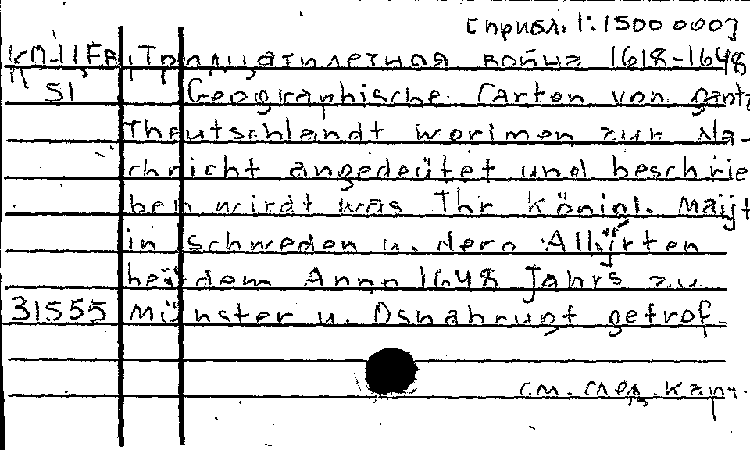 [Прибл. 1:1500 000]
Тридцатилетная война 1618-1648
51 Geographische Carten von gantz
Theutschlandt worinnen zur Na-
chricht angedeütet und beschrie
ben wirdt was Ihr Königl. Maijt
in Schweden u. dero Allijrten
beij dem Anno 1648 Jahrs zu
31555 Münster u. Osnabrugt getrof-
см. след. карт.